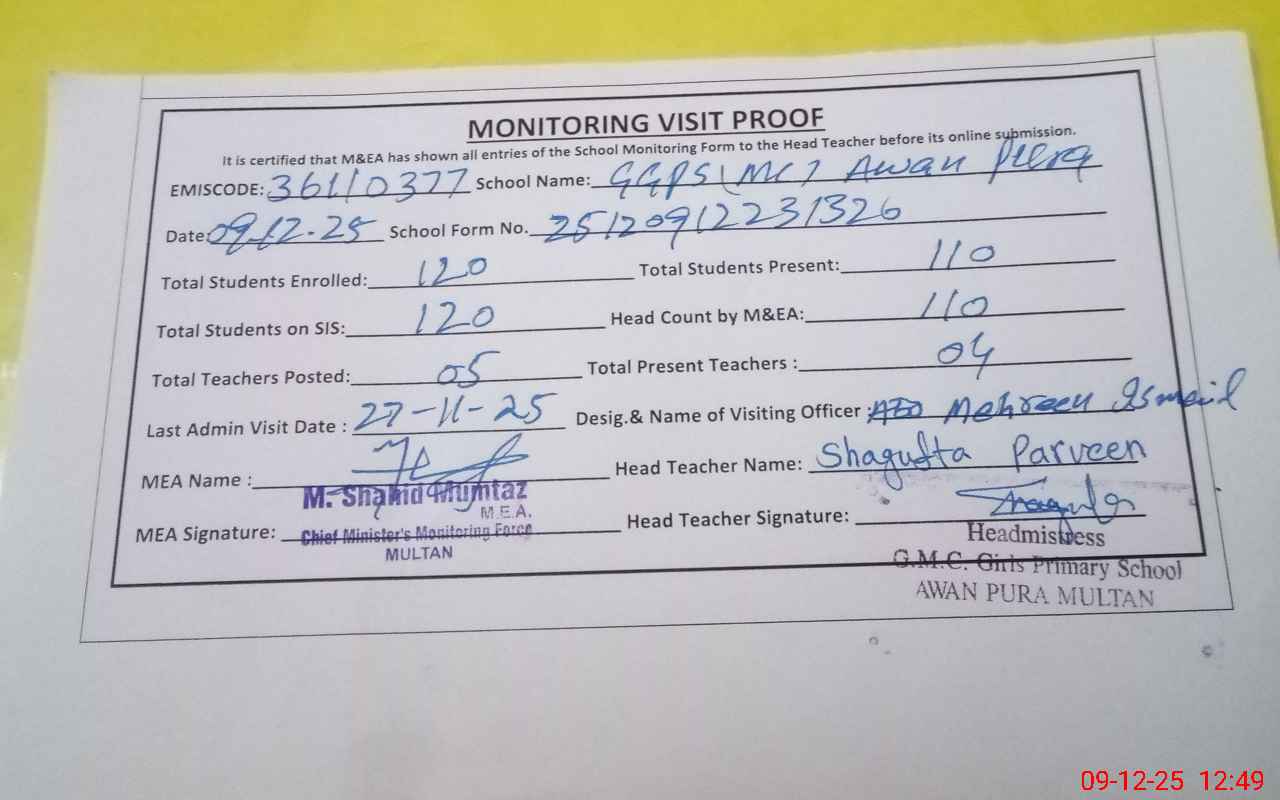 MONITORING VISIT PROOF
It is certified that M&EA has shown all entries of the School Monitoring Form to the Head Teacher before its online submission.
EMISCODE: 36110377 School Name: GGPS MC Awan Pura
Date: 09.12.25 School Form No. 25120912231326
Total Students Enrolled: 120 Total Students Present: 110
Total Students on SIS: 120 Head Count by M&EA: 110
Total Teachers Posted: 05 Total Present Teachers : 04
Last Admin Visit Date : 27-11-25 Desig.& Name of Visiting Officer : Mehreen Ismail
MEA Name : Head Teacher Name: Shagufta Parveen
M. Shahid Mumtaz
M.E.A.
MEA Signature: Chief Minister's Monitoring Force Head Teacher Signature:
MULTAN
Headmistress
G.M.C. Girls Primary School
AWAN PURA MULTAN
09-12-25 12:49